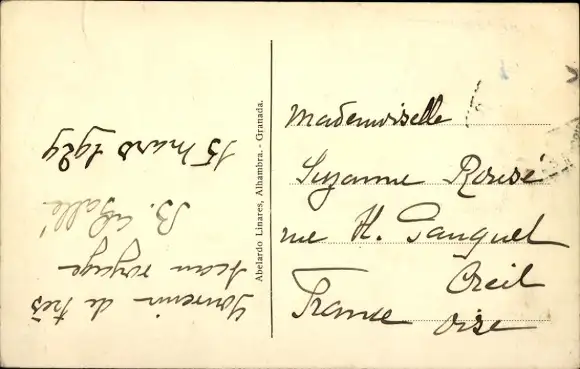 Souvenir de très
beau voyage
B. Gallé
15 mars 1929
Abelardo Linares, Alhambra. - Granada.
Mademoiselle
Suzanne Rousé
rue H. Pauquet
Creil
France Oise